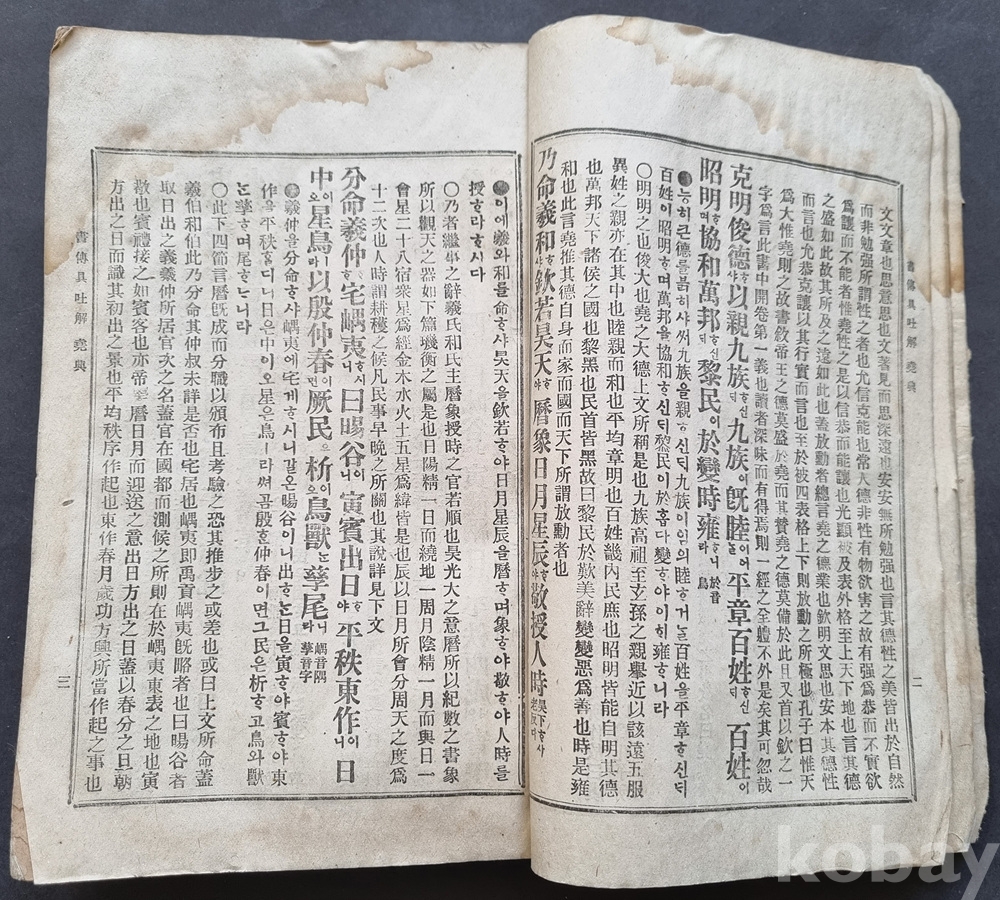 書傳具吐解 堯典
二
文文章也思意思也文著見而思深遠也安安無所勉强也言其德性之美皆出於自然
而非勉强所謂性之者也允信克能也常人德非性有物欲害之故有强爲恭而不實欲
爲讓而不能者惟堯性之是以信恭而能讓也光顯被及表外格至上天下地也言其德
之盛如此故其所及之遠如此也蓋放勳者總言堯之德業也欽明文思也安本其德性
而言也允恭克讓以其行實而言也至於被四表格上下則放勳之所極也孔子曰惟天
爲大惟堯則之故書敘帝王之德莫盛於堯而其贊堯之德莫備於此且又首以欽之一
字爲言此書中開卷第一義也讀者深味而有得焉則一經之全體不外是矣其可忽哉
克明俊德ᄒᆞ샤以親九族ᄒᆞ신ᄃᆡ九族이旣睦이어ᄂᆞᆯ平章百姓ᄒᆞ신ᄃᆡ百姓이
昭明ᄒᆞ며協和萬邦ᄒᆞ신ᄃᆡ黎民이於變時雍ᄒᆞ니라 於音烏
●능히큰德를ᄇᆞᆰ히샤써九族을親ᄒᆞ신ᄃᆡ九族이임의睦ᄒᆞ거ᄂᆞᆯ百姓을平章ᄒᆞ신ᄃᆡ
百姓이昭明ᄒᆞ며萬邦을協和ᄒᆞ신ᄃᆡ黎民이於홉다變ᄒᆞ야이히雍ᄒᆞ니라
〇明明之也俊大也堯之大德上文所稱是也九族高祖至玄孫之親擧近以該遠五服
異姓之親亦在其中也睦親而和也平均章明也百姓畿內民庶也昭明皆能自明其德
也萬邦天下諸侯之國也黎黑也民首皆黑故曰黎民於歎美辭變變惡爲善也時是雍
和也此言堯推其德自身而家而國而天下所謂放勳者也
乃命羲和ᄒᆞ샤欽若昊天ᄒᆞ야曆象日月星辰ᄒᆞ야敬授人時ᄒᆞ시다
●이에羲와和를命ᄒᆞ샤昊天을欽若ᄒᆞ야日月星辰을曆ᄒᆞ며象ᄒᆞ야敬ᄒᆞ야人時를
授ᄒᆞ라ᄒᆞ시다
〇乃者繼事之辭羲氏和氏主曆象授時之官若順也昊光大之意曆所以紀數之書象
所以觀天之器如下篇璣衡之屬是也日陽精一日而繞地一周月陰精一月而與日一
會星二十八宿衆星爲經金木水火土五星爲緯皆是也辰以日月所會分周天之度爲
十二次也人時謂耕穫之候凡民事早晚之所關也其說詳見下文
分命羲仲ᄒᆞ샤宅嵎夷ᄒᆞ시니曰暘谷이니寅賓出日ᄒᆞ야平秩東作이니日
中이오星鳥ㅣ라以殷仲春이면厥民은析이오鳥獸ᄂᆞᆫ孳尾니라 嵎音隅孳音字
●羲仲을分命ᄒᆞ샤嵎夷에宅게ᄒᆞ시니갈온暘谷이니出ᄒᆞᄂᆞᆫ日을寅ᄒᆞ야賓ᄒᆞ야東
作을平秩홈디니日은中이오星은鳥ㅣ라써곰殷호仲春이면그民은析ᄒᆞ고鳥와獸
ᄂᆞᆫ孳ᄒᆞ며尾ᄒᆞᄂᆞ니라
〇此下四節言曆旣成而分職以頒布且考驗之恐其推步之或差也或曰上文所命蓋
羲伯和伯此乃分命其仲叔未詳是否也宅居也嵎夷卽禹貢嵎夷旣略者也曰暘谷者
取日出之義羲仲所居官次之名蓋官在國都而測候之所則在於嵎夷東表之地也寅
敬也賓禮接之如賓客也亦帝嚳曆日月而迎送之意出日方出之日蓋以春分之旦朝
方出之日而識其初出之景也平均秩序作起也東作春月歲功方興所當作起之事也
書傳具吐解 堯典
三
kobay